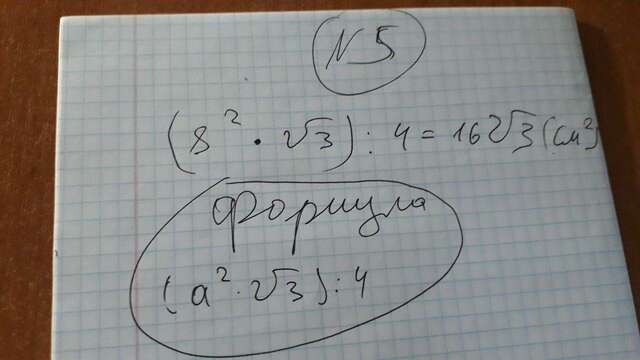 N5
(8² · √3) : 4 = 16√3 (см²)
формула
(a² · √3) : 4